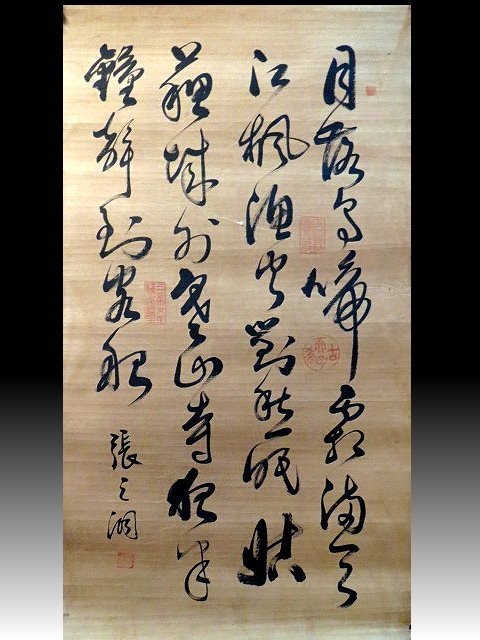 月落烏啼霜滿天
江楓漁火對愁眠姑
蘇城外寒山寺夜半
鐘聲到客船
張之洞